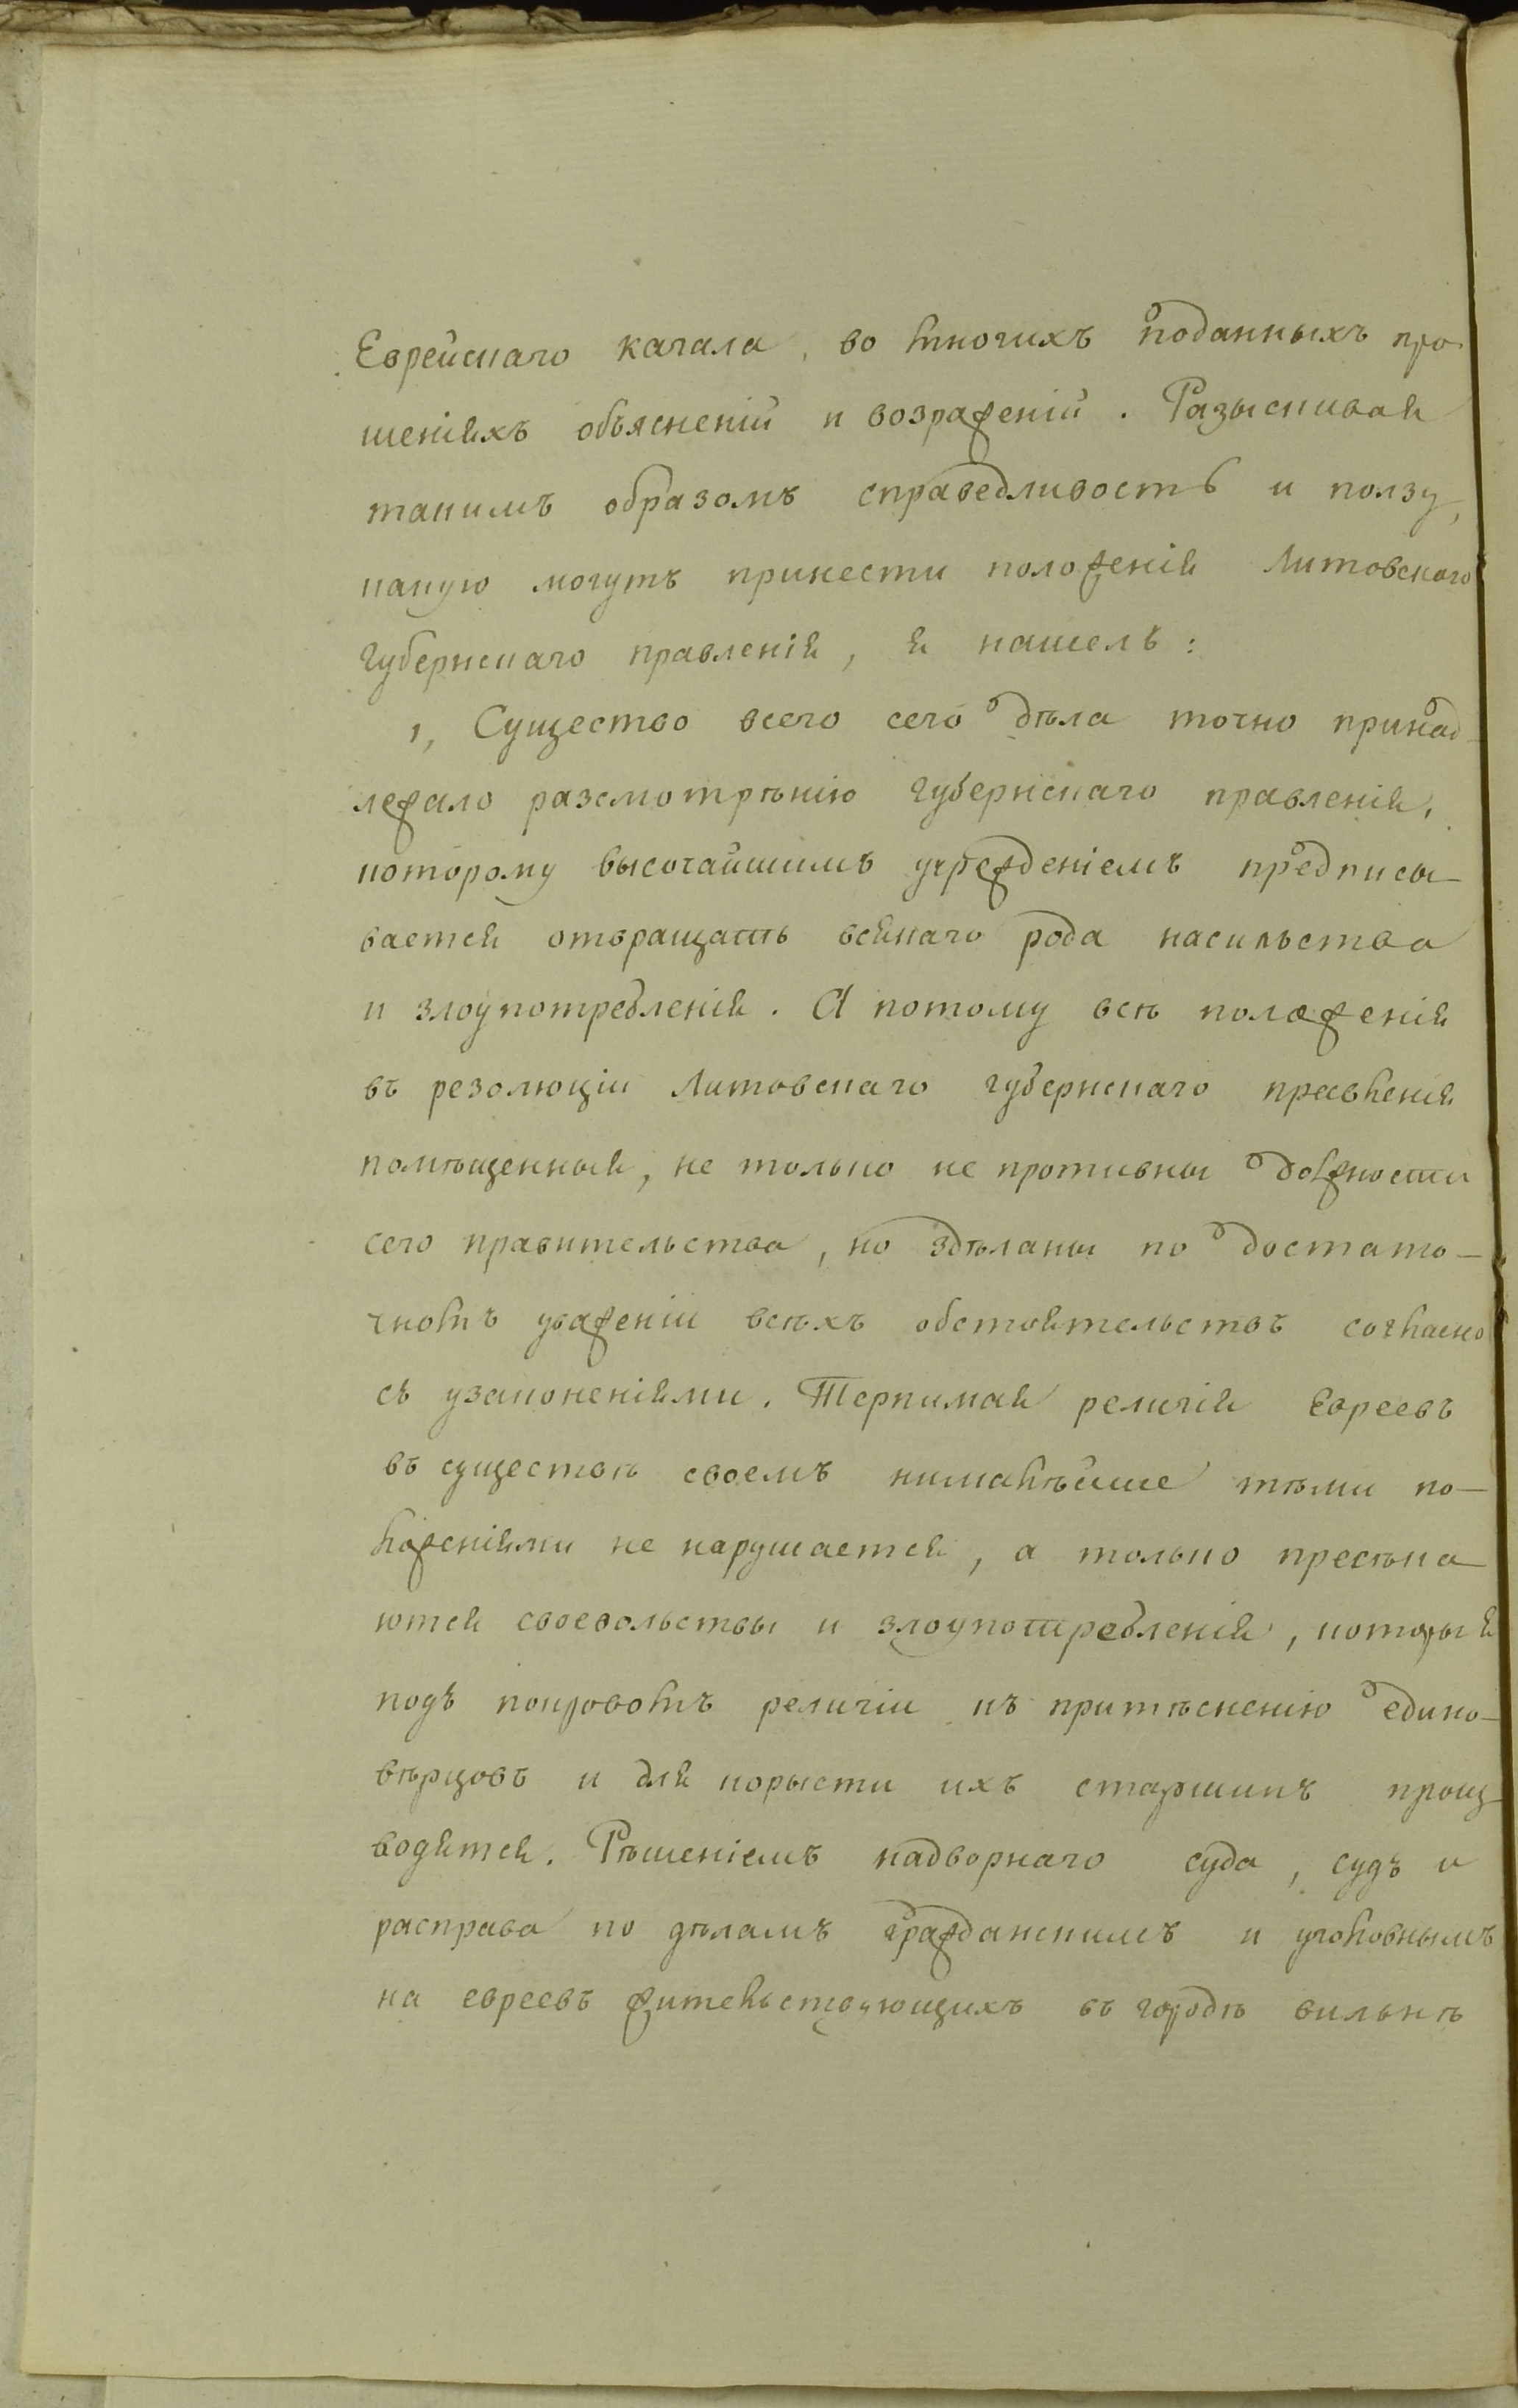 Еврейскаго кагала, во многихъ поданныхъ про
шеніяхъ объясненій и возраженій. Разыскивая
такимъ образомъ справедливость и ползу,
какую могутъ принести положенія Литовскаго
губернскаго правленія, я нашелъ:
1, Существо всего сего дѣла точно принад-
лежало разсмотрѣнію губернскаго правленія,
которому высочайшимъ учрежденіемъ предписы-
вается отвращать всякаго рода насильства
и злоупотребленія. А потому всѣ положенія
въ резолюціи Литовскаго губернскаго правленія
помѣщенныя, не только не противны должности
сего правительства, но здѣланы по достато-
чномъ уваженіи всѣхъ обстоятельствъ согласно
съ узаконеніями. Терпимая религія Евреевъ
въ существѣ своемъ нималѣйше тѣми по-
ложеніями не нарушается, а только пресѣка-
ются своевольствы и злоупотребленія, которыя
подъ покровомъ религіи къ притѣсненію едино-
вѣрцовъ и для корысти ихъ старшинъ произ
водятся. Рѣшеніемъ надворнаго суда, судъ и
расправа по дѣламъ гражданскимъ и уголовнымъ
на евреевъ жительствующихъ въ городѣ вильнѣ